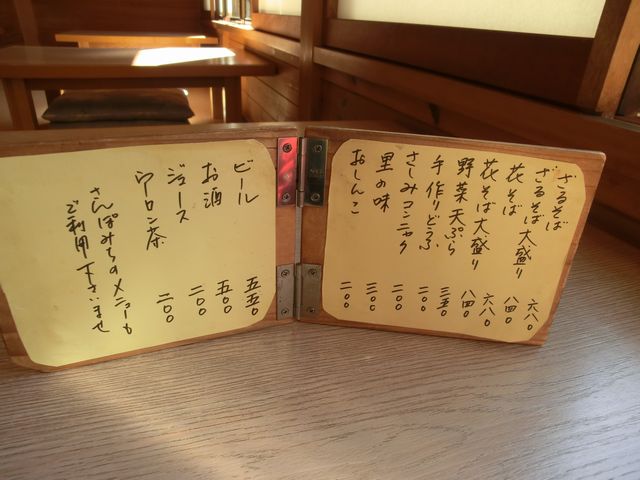 ざるそば 六八〇
ざるそば大盛り 八四〇
花そば 六八〇
花そば大盛り 八四〇
野菜天ぷら 三五〇
手作りどうふ 二〇〇
さしみコンニャク 二〇〇
里の味 二〇〇
おしんこ 二〇〇
ビール 五五〇
お酒 五〇〇
ジュース 二〇〇
ウーロン茶 二〇〇
さんぽみちのメニューも
ご利用下さいませ